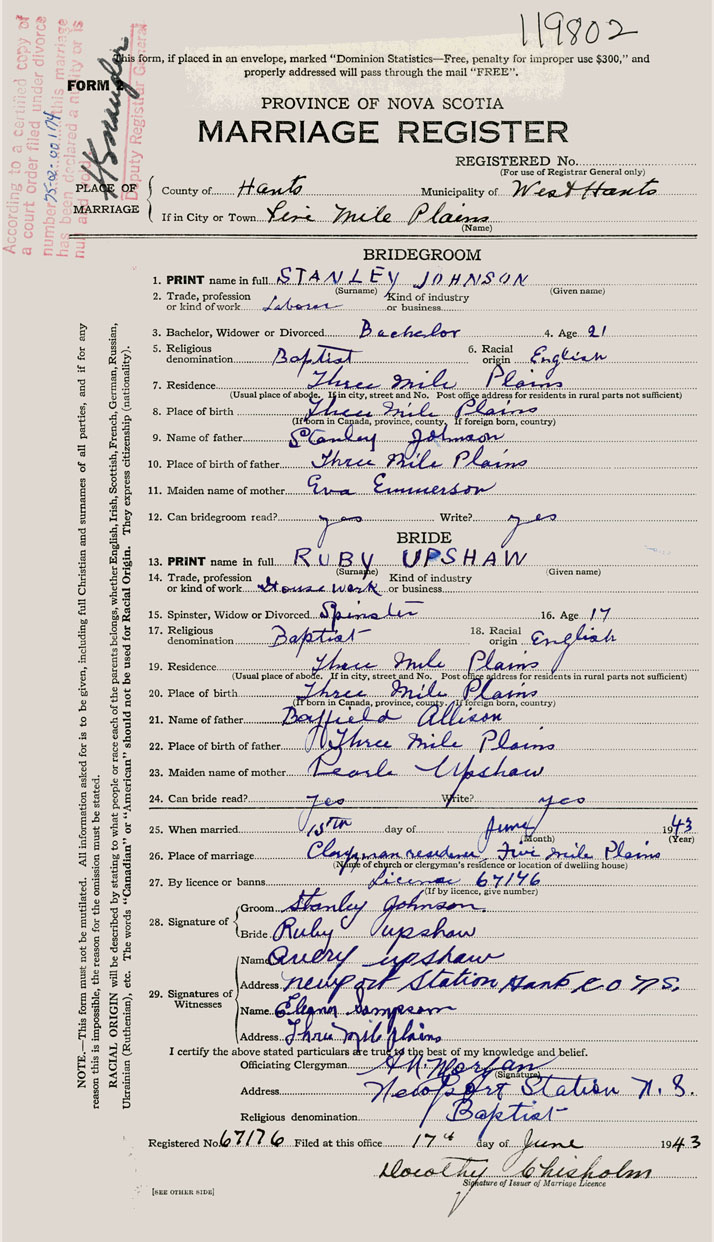 119802
This form, if placed in an envelope, marked "Dominion Statistics—Free, penalty for improper use $300," and
properly addressed will pass through the mail "FREE".
FORM 2
According to a certified copy of
a court order filed under divorce
number 75-02-00174 this marriage
has been declared a nullity or is
null and void
Deputy Registrar General
PROVINCE OF NOVA SCOTIA
MARRIAGE REGISTER
REGISTERED No.
(For use of Registrar General only)
PLACE OF MARRIAGE
County of Hants Municipality of West Hants
If in City or Town Five Mile Plains
(Name)
BRIDEGROOM
1. PRINT name in full STANLEY JOHNSON
(Surname) (Given name)
2. Trade, profession or kind of work Laborer Kind of industry or business
3. Bachelor, Widower or Divorced Bachelor 4. Age 21
5. Religious denomination Baptist 6. Racial origin English
7. Residence Three Mile Plains
(Usual place of abode. If in city, street and No. Post office address for residents in rural parts not sufficient)
8. Place of birth Three Mile Plains
(If born in Canada, province, county. If foreign born, country)
9. Name of father Stanley Johnson
10. Place of birth of father Three Mile Plains
11. Maiden name of mother Eva Emmerson
12. Can bridegroom read? yes Write? yes
BRIDE
13. PRINT name in full RUBY UPSHAW
(Surname) (Given name)
14. Trade, profession or kind of work House work Kind of industry or business
15. Spinster, Widow or Divorced Spinster 16. Age 17
17. Religious denomination Baptist 18. Racial origin English
19. Residence Three Mile Plains
(Usual place of abode. If in city, street and No. Post office address for residents in rural parts not sufficient)
20. Place of birth Three Mile Plains
(If born in Canada, province, county. If foreign born, country)
21. Name of father Allison
22. Place of birth of father Three Mile Plains
23. Maiden name of mother Pearle Upshaw
24. Can bride read? yes Write? yes
25. When married 15TH day of June 1943
(Month) (Year)
26. Place of marriage Clergyman residence Five Mile Plains
(Name of church or clergyman's residence or location of dwelling house)
27. By licence or banns License 67176
(If by licence, give number)
28. Signature of
Groom Stanley Johnson.
Bride Ruby upshaw
29. Signatures of Witnesses
Name Avery upshaw
Address Newport Station Hants CO NS.
Name Eleanor Sampson
Address Three mile plains
I certify the above stated particulars are true to the best of my knowledge and belief.
Officiating Clergyman Morgan
(Signature)
Address Newport Station N.S.
Religious denomination Baptist
Registered No. 67176 Filed at this office 17th day of June 1943
Dorothy Chisholm
Signature of Issuer of Marriage Licence
[SEE OTHER SIDE]
NOTE.—This form must not be mutilated. All information asked for is to be given, including full Christian and surnames of all parties, and if for any
reason this is impossible, the reason for the omission must be stated.
RACIAL ORIGIN will be described by stating to what people or race each of the parents belongs, whether English, Irish, Scottish, French, German, Russian,
Ukrainian (Ruthenian), etc. The words "Canadian" or "American" should not be used for Racial Origin. They express citizenship (nationality).